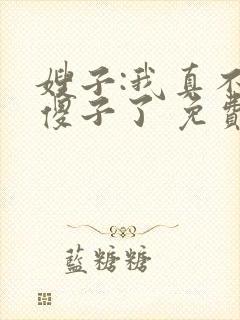 嫂子:我真不
傻子了 免費
藍糖糖